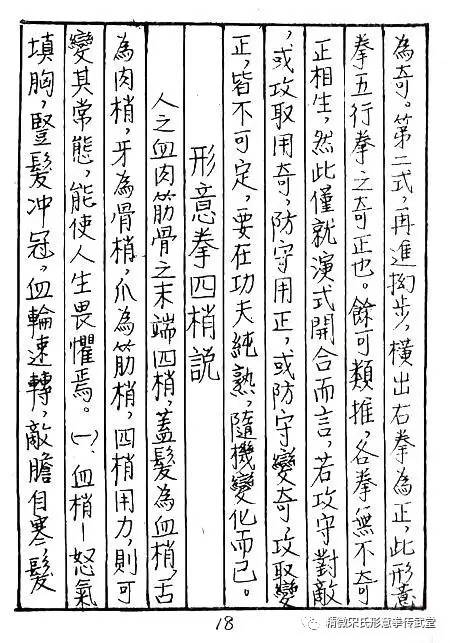 為奇。第二式，再進拗步，橫出右拳為正，此形意
拳五行拳之奇正也。餘可類推，各拳無不奇
正相生，然此僅就演式開合而言，若攻守對敵
，或攻取用奇，防守用正，或防守變奇，攻取變
正，皆不可定，要在功夫純熟，隨機變化而已。
形意拳四梢説
人之血肉筋骨之末端四梢，蓋髮為血梢，舌
為肉梢，牙為骨梢，爪為筋梢，四梢用力，則可
變其常態，能使人生畏懼焉。㈠、血梢－怒氣
填胸，豎髮冲冠，血輪速轉，敵膽自寒髮
18
精微宋氏形意拳传武堂